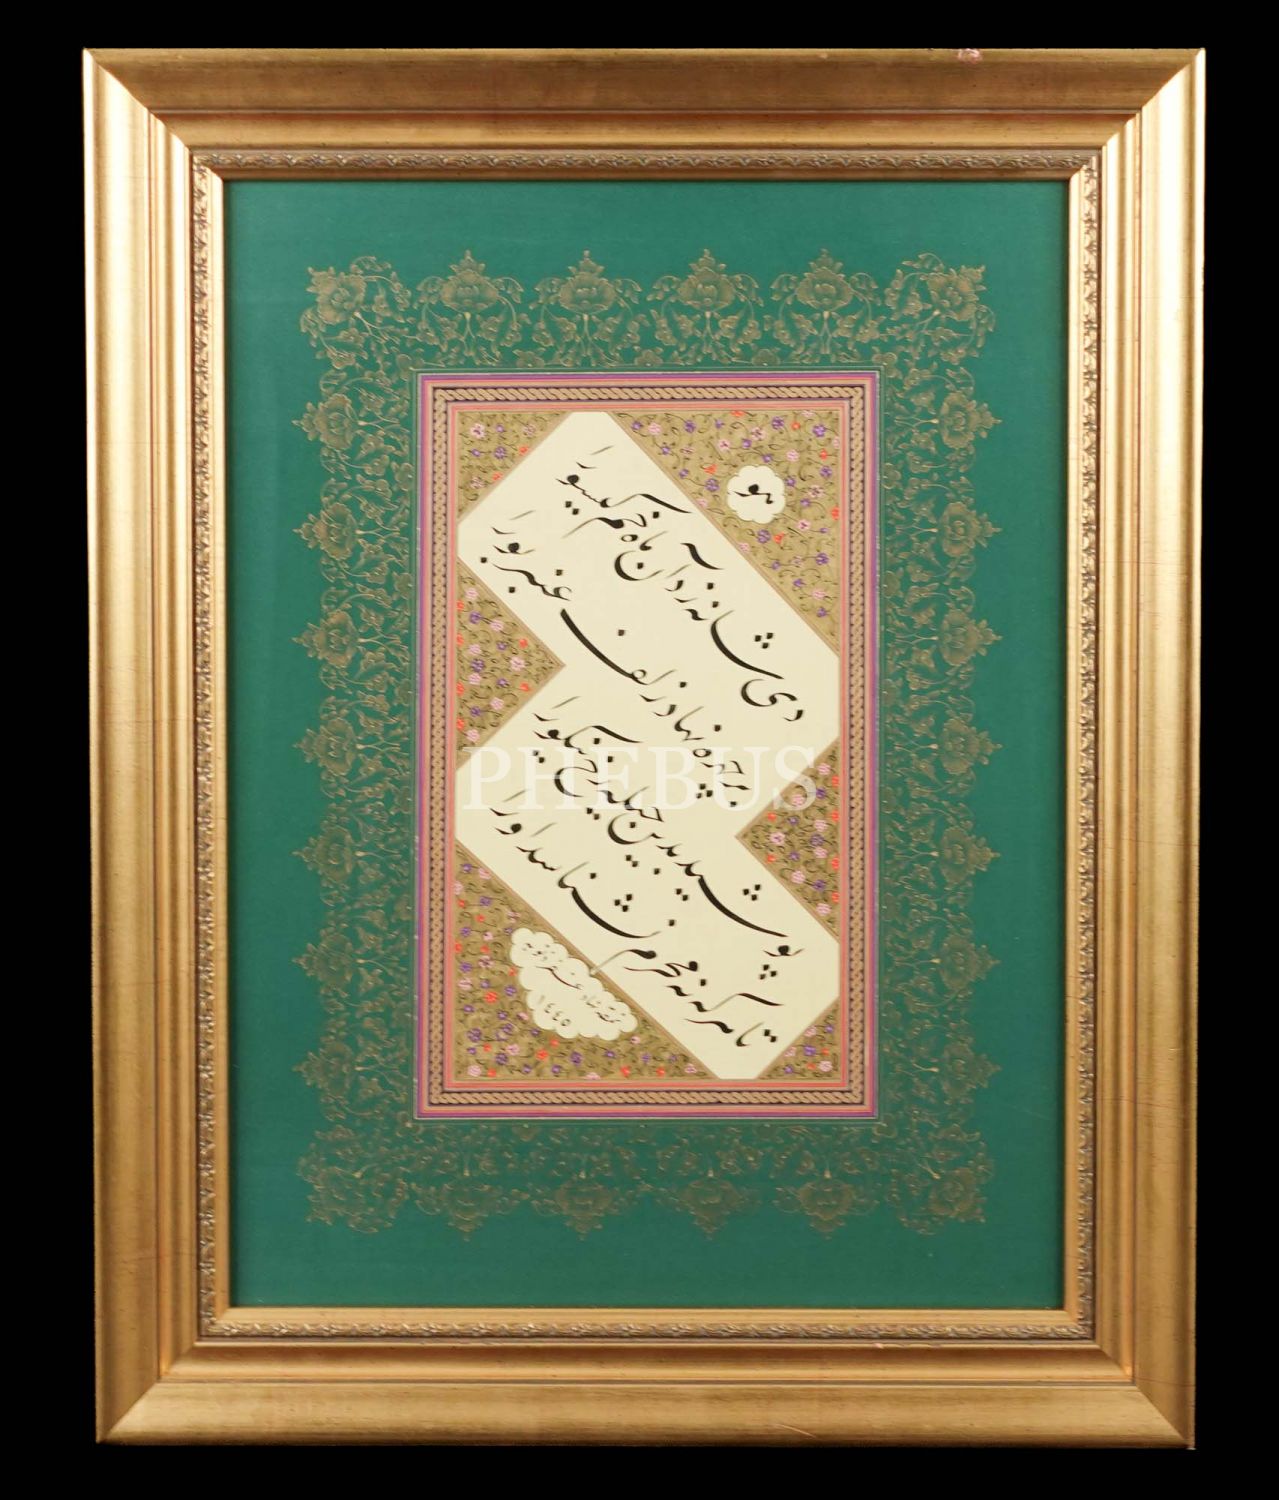 هو
دی شانه زد آن ماه خم گیسو را
بر چهره نهاد زلف عنبر بو را
پوشید بدین حیله رخ نیکو را
تا هر که نه محرم نشناسد او را
۱٤٤٥
PHEBUS